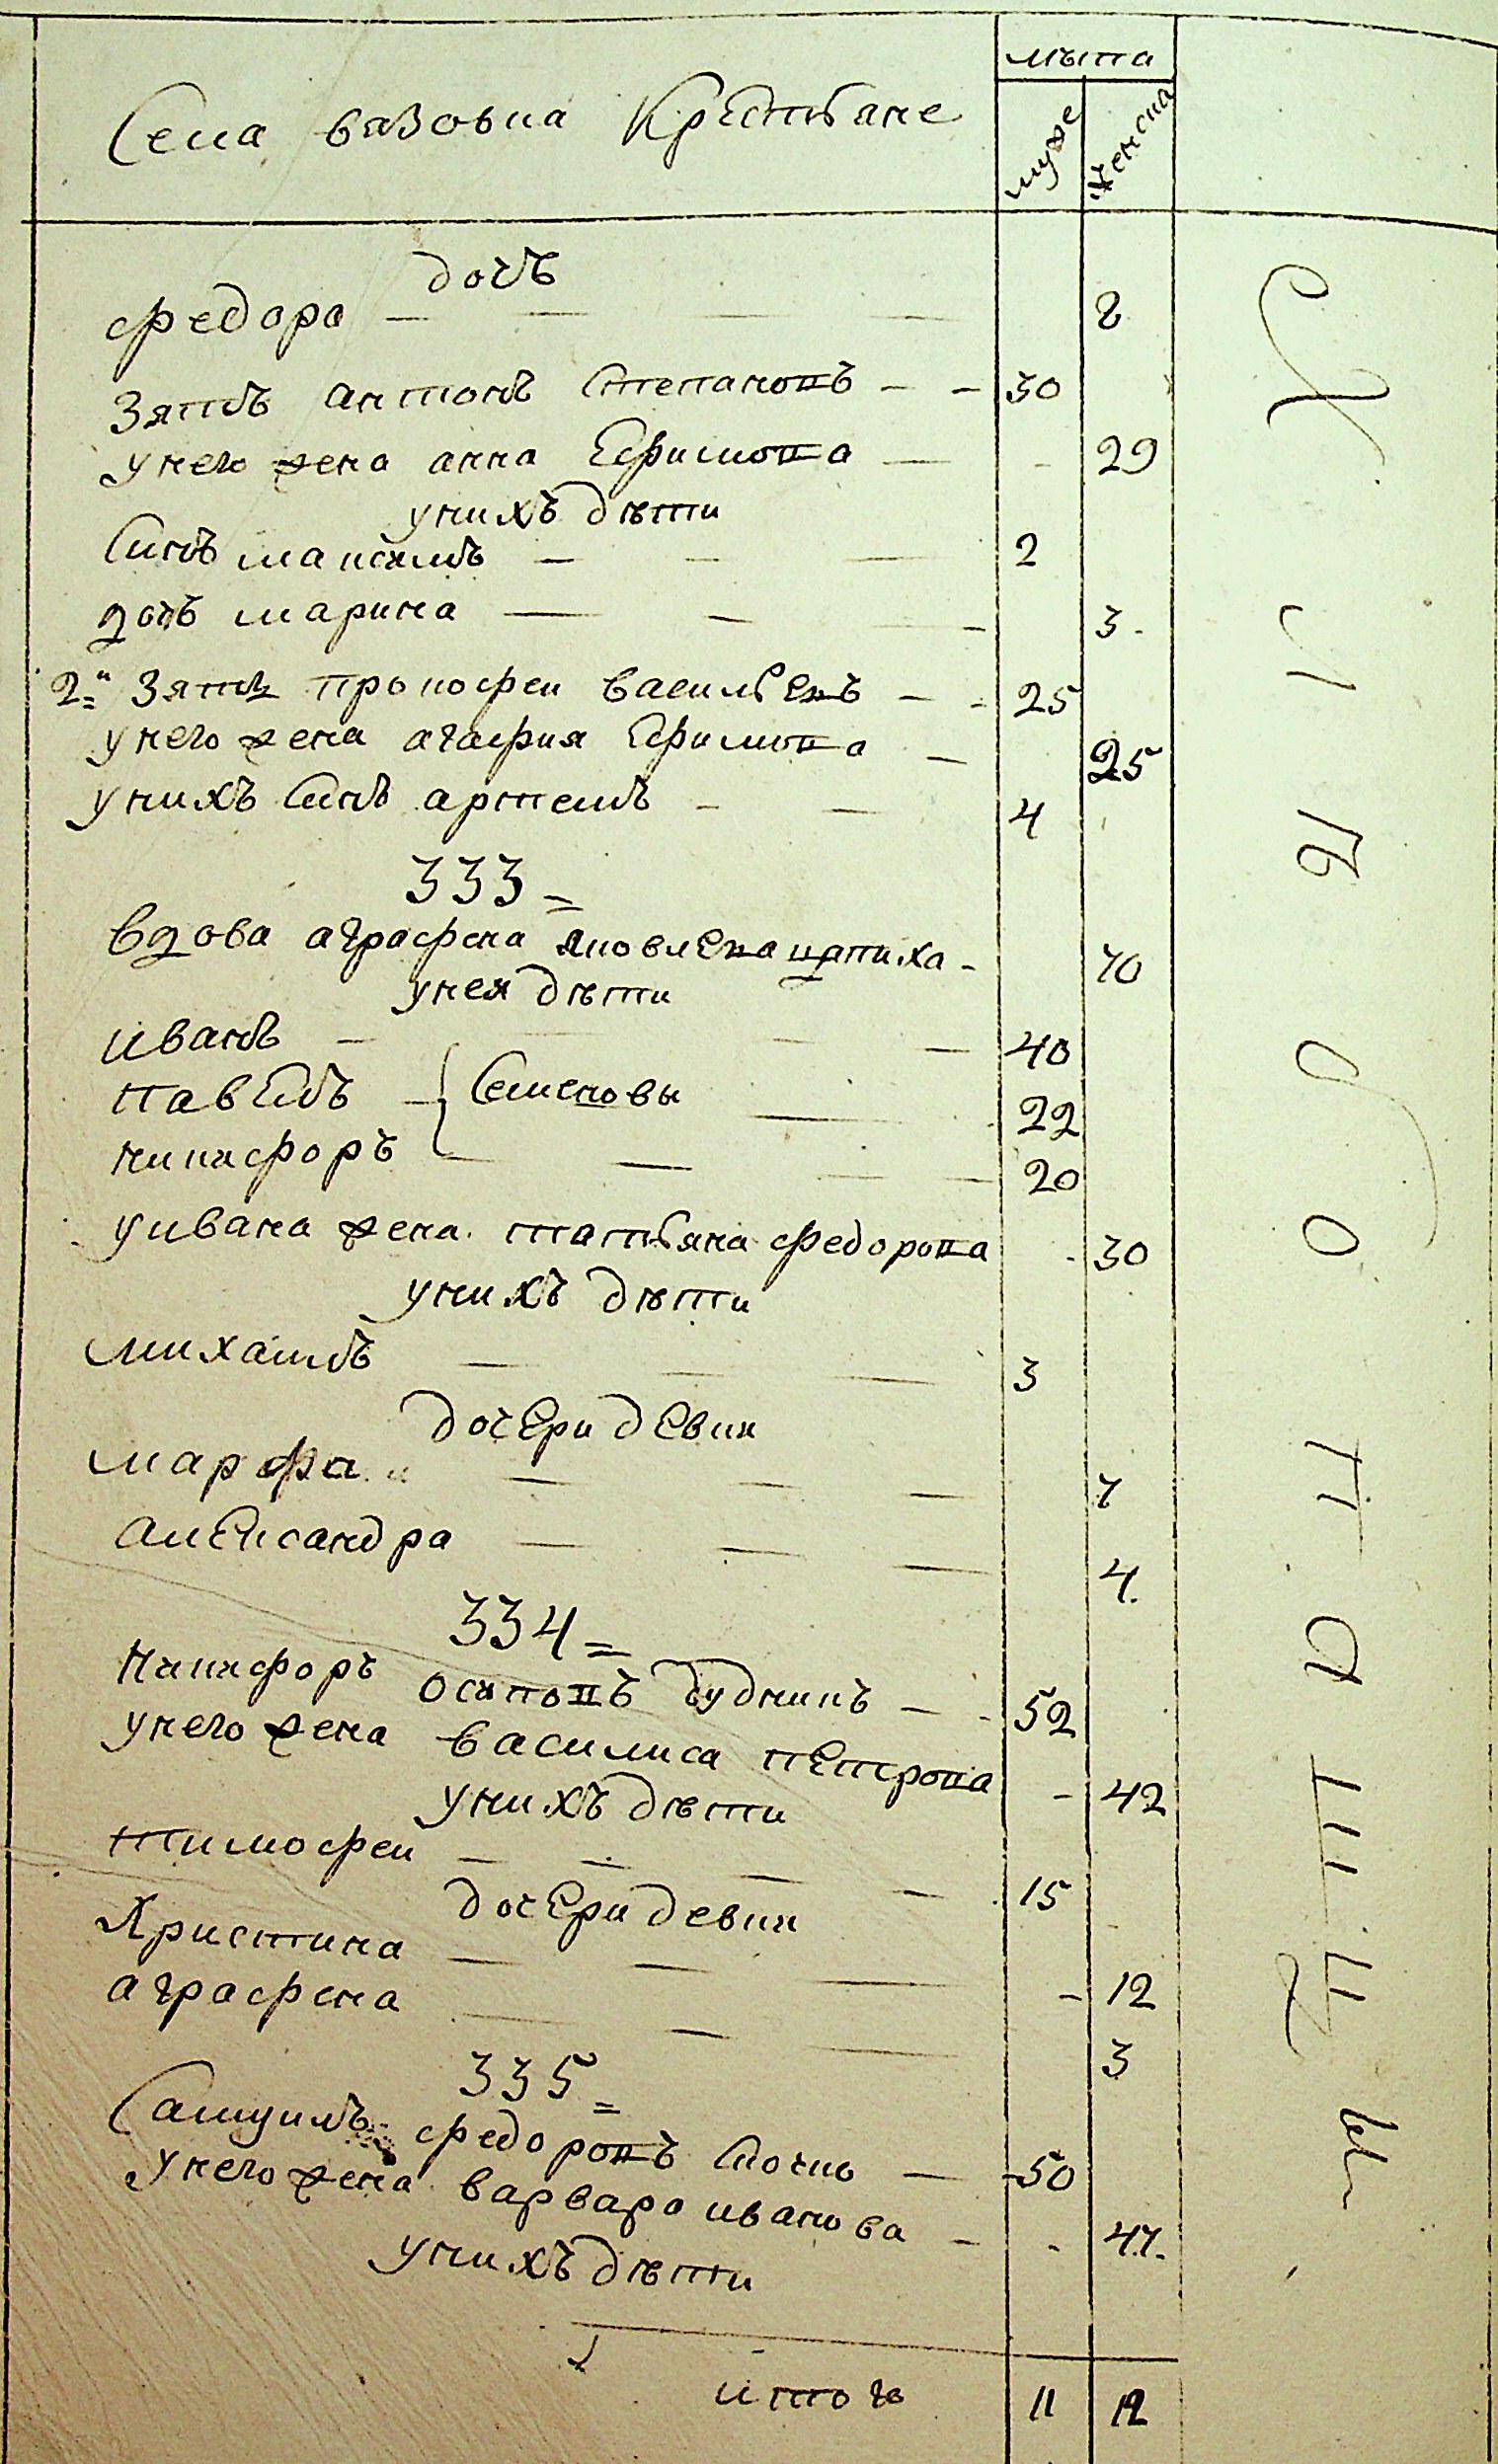 Села вязовка Крестьяне
лѣта
муже
женска
дочь
федора 8
Зять антонъ Степановъ 30
унего жена анна Ефимова 29
унихъ дѣти
Сынъ максимъ 2
дочь марина 3
2й Зять прокофеи васильевъ 25
унего жена агафия Ефимова 25
унихъ Сынъ артемъ 4
333
вдова аграфена яковлева 70
унея дѣти
иванъ 40
павелъ Семеновы 22
никифоръ 20
уивана жена татьяна федорова 30
унихъ дѣти
михаилъ 3
дочери девки
марфа 7
александра 4
334
Никифоръ осиповъ Дудникъ 52
унего жена василиса петрова 42
унихъ дѣти
тимофеи 15
дочери девки
Христина 12
аграфена 3
335
Самуилъ федоровъ 50
унего жена варвара иванова 47
унихъ дѣти
итого 11 12